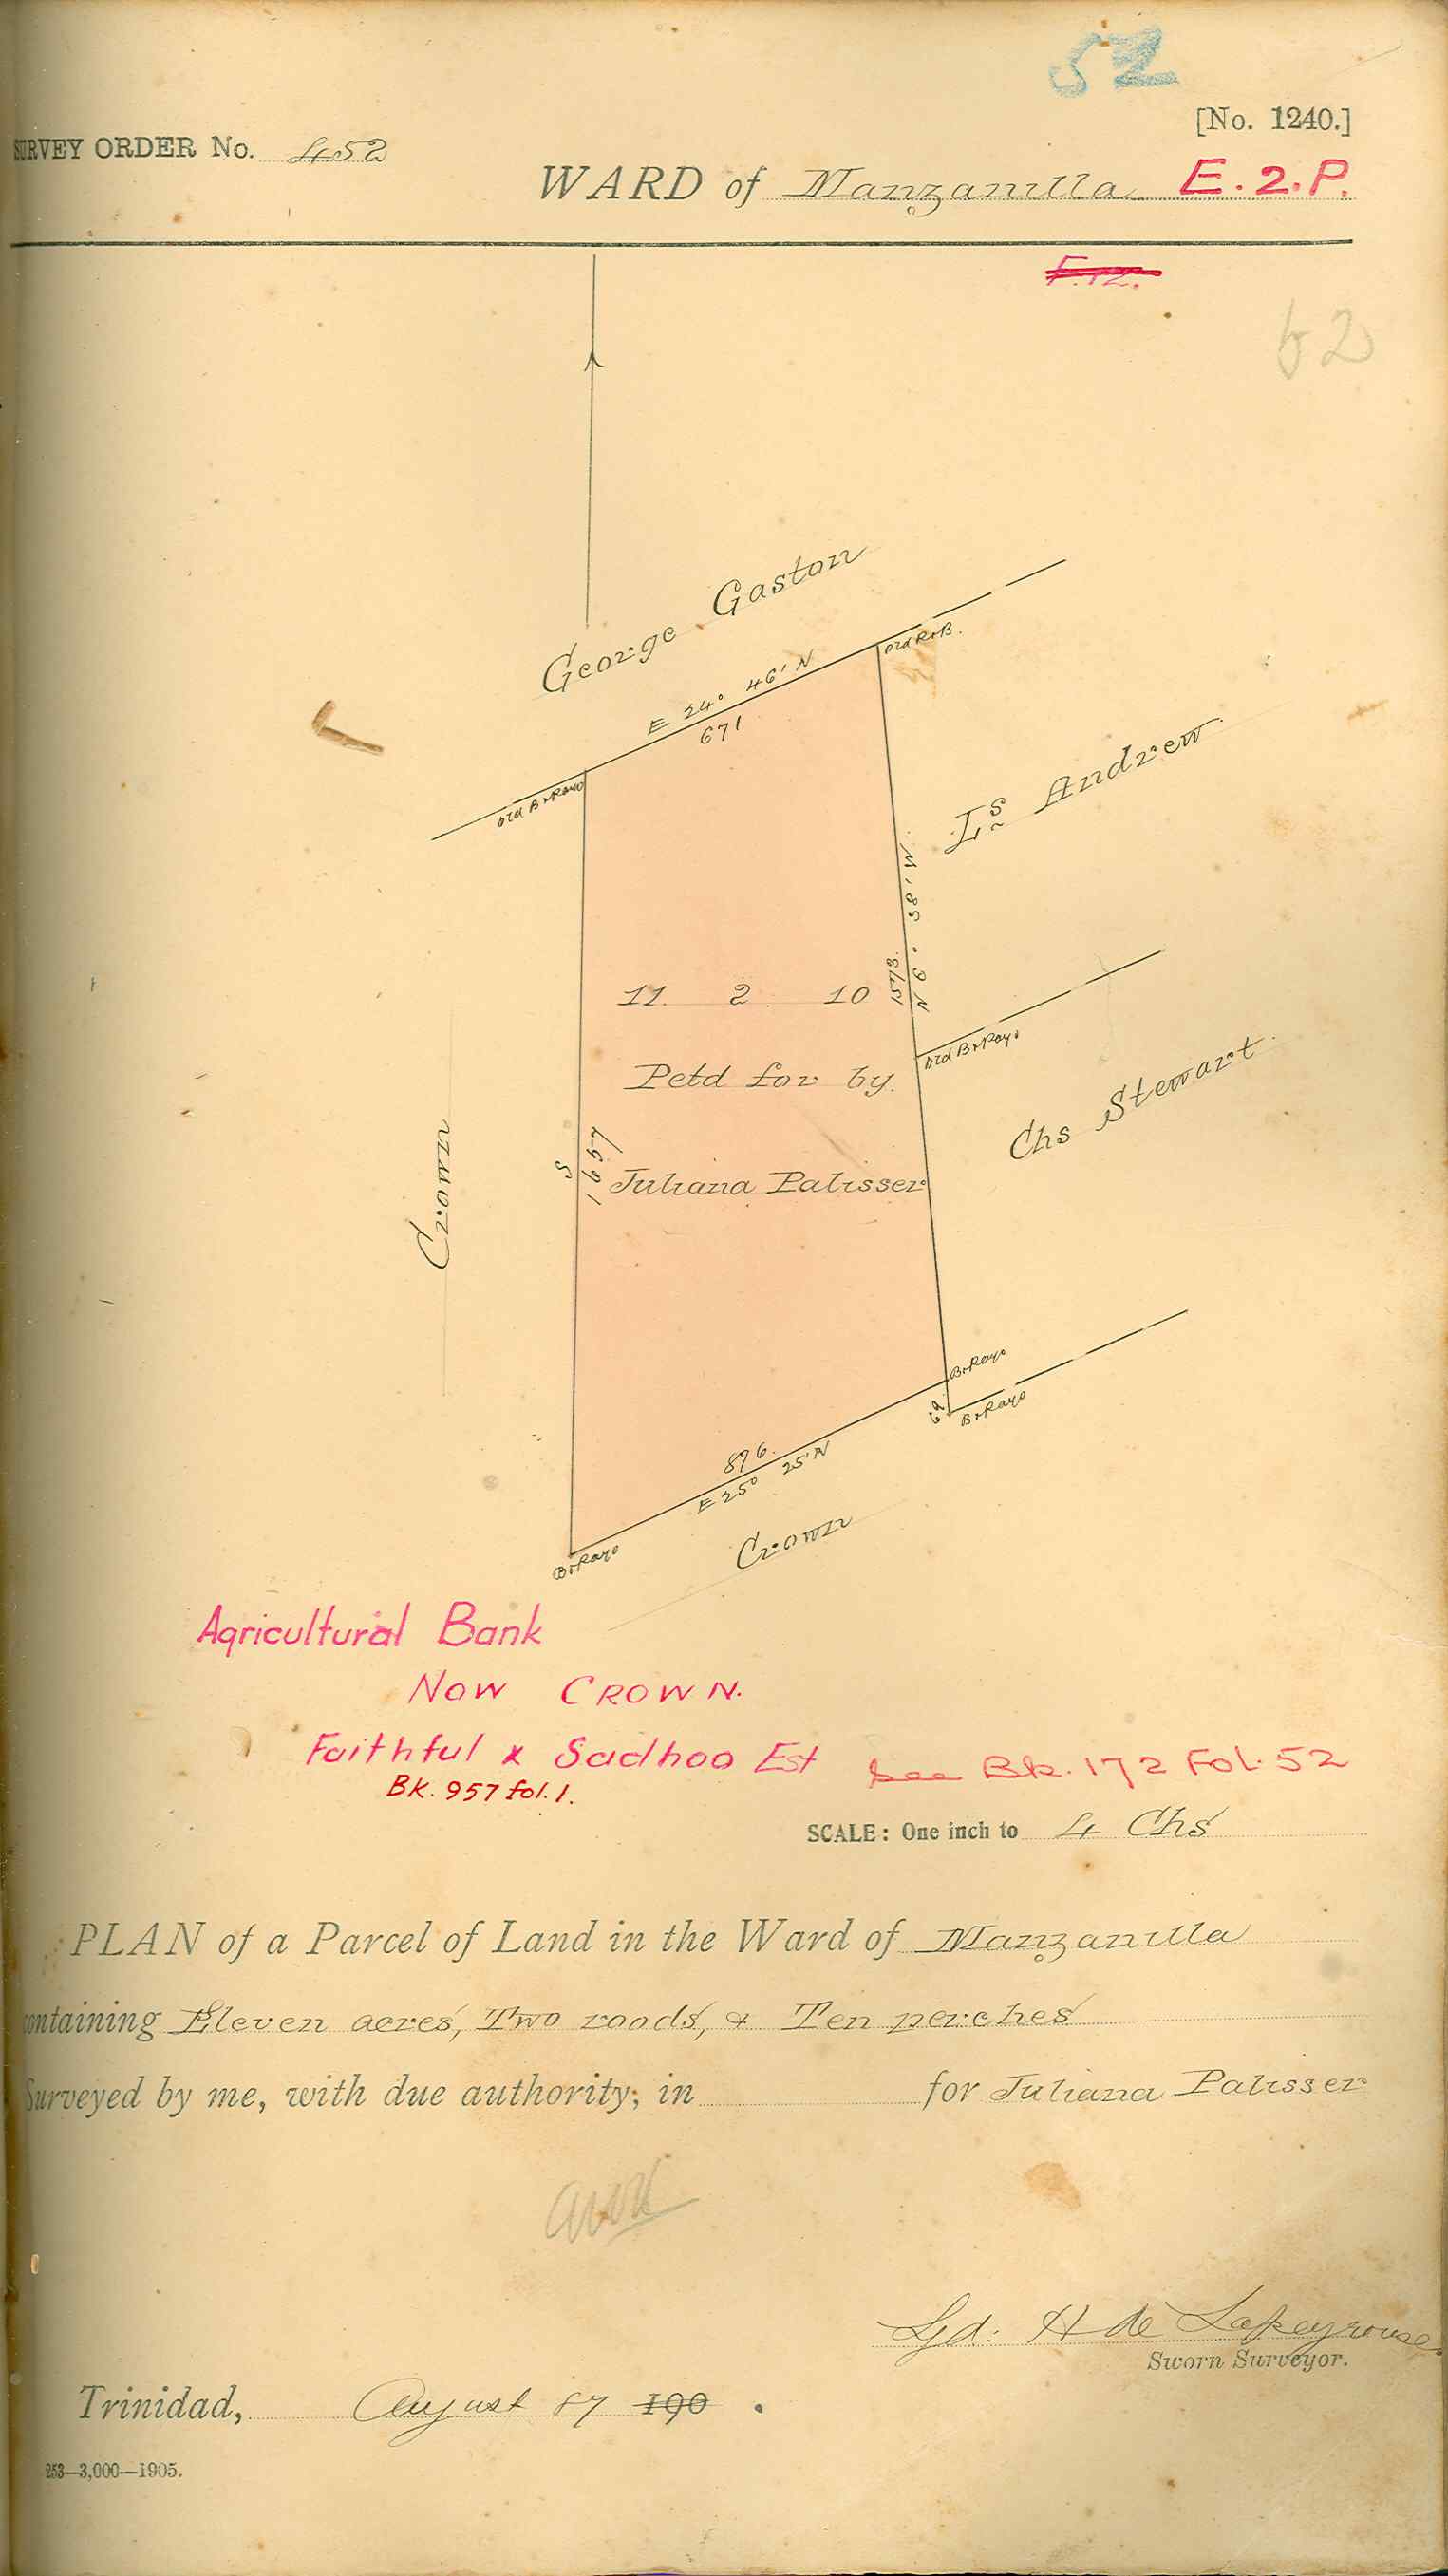 52
[No. 1240.]
SURVEY ORDER No. 452
WARD of Manzanilla E.2.P.
62
George Gaston
Old R & B.
E 24° 46' N
671
Old B & Rayo
Ls Andrew
N 9° 58' W.
1573.
11. 2. 10
Old B & Rayo
Petd for by.
Chs Stewart.
Crown
S
1657
Juliana Palisser
B & Rayo
62.
B & Rayo
896.
E 25° 25' N
Crown
B & Rayo
Agricultural Bank
NOW CROWN.
Faithful & Sadhoo Est See Bk. 172 Fol. 52
Bk. 957 fol. 1.
SCALE: One inch to 4 Chs
PLAN of a Parcel of Land in the Ward of Manzanilla
containing Eleven acres, Two roods, & Ten perches
Surveyed by me, with due authority; in for Juliana Palisser
Sgd: H de Lapeyrouse
Sworn Surveyor.
Trinidad, August 87 190 .
253—3,000—1905.